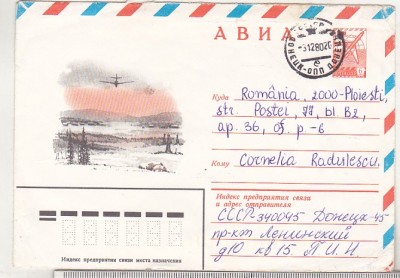 АВИА
ДОНЕЦК-ППП ДОНЕЦК
-3128020
е
Куда România, 2000-Ploiesti,
str. Postei, 77, bl B2,
ap. 36, of. p-6
Кому Cornelia Radulescu,
Индекс предприятия связи
и адрес отправителя
СССР-340045 Донецк-45
пр-кт Ленинский
д10 кв 15 П.И.Н.
Индекс предприятия связи места назначения